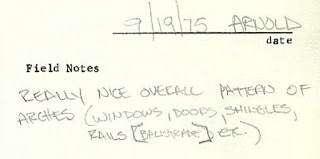 9/19/75 ARNOLD
date
Field Notes
REALLY NICE OVERALL PATTERN OF
ARCHES (WINDOWS, DOORS, SHINGLES,
RAILS [BALUSTRADE] ETC.)